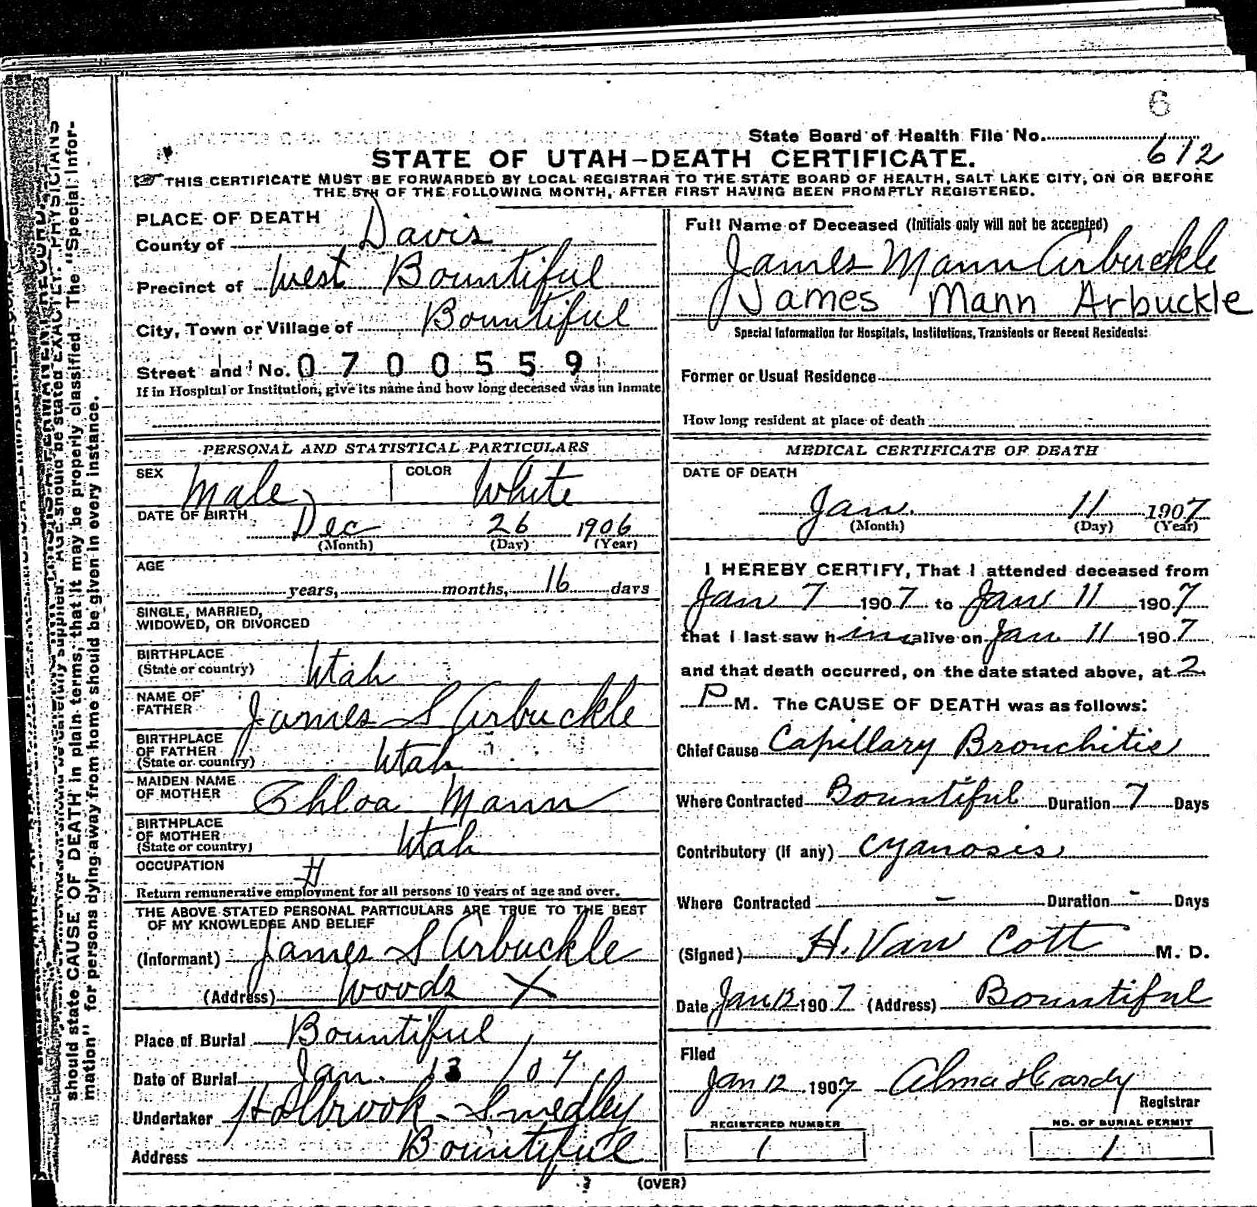 6
State Board of Health File No. 612
STATE OF UTAH—DEATH CERTIFICATE.
THIS CERTIFICATE MUST BE FORWARDED BY LOCAL REGISTRAR TO THE STATE BOARD OF HEALTH, SALT LAKE CITY, ON OR BEFORE
THE 5TH OF THE FOLLOWING MONTH, AFTER FIRST HAVING BEEN PROMPTLY REGISTERED.
PLACE OF DEATH
County of Davis
Precinct of West Bountiful
City, Town or Village of Bountiful
Street and No. 0700559
If in Hospital or Institution, give its name and how long deceased was an inmate
PERSONAL AND STATISTICAL PARTICULARS
SEX Male COLOR White
DATE OF BIRTH Dec 26 1906
(Month) (Day) (Year)
AGE
years, months, 16 days
SINGLE, MARRIED,
WIDOWED, OR DIVORCED
BIRTHPLACE
(State or country) Utah
NAME OF
FATHER James S Arbuckle
BIRTHPLACE
OF FATHER
(State or country) Utah
MAIDEN NAME
OF MOTHER Chloa Mann
BIRTHPLACE
OF MOTHER
(State or country) Utah
OCCUPATION
Return remunerative employment for all persons 10 years of age and over.
THE ABOVE STATED PERSONAL PARTICULARS ARE TRUE TO THE BEST
OF MY KNOWLEDGE AND BELIEF
(Informant) James S Arbuckle
(Address) Woods X
Place of Burial Bountiful
Date of Burial Jan. 13 /07
Undertaker Holbrook-Smedley
Address Bountiful
Full Name of Deceased (Initials only will not be accepted)
James Mann Arbuckle
James Mann Arbuckle
Special Information for Hospitals, Institutions, Transients or Recent Residents:
Former or Usual Residence
How long resident at place of death
MEDICAL CERTIFICATE OF DEATH
DATE OF DEATH
Jan. 11 1907
(Month) (Day) (Year)
I HEREBY CERTIFY, That I attended deceased from
Jan 7 1907 to Jan 11 1907
that I last saw him alive on Jan 11 1907
and that death occurred, on the date stated above, at 2
P M. The CAUSE OF DEATH was as follows:
Chief Cause Capillary Bronchitis
Where Contracted Bountiful Duration 7 Days
Contributory (if any) Cyanosis
Where Contracted - Duration - Days
(Signed) H. Van Cott M. D.
Date Jan 12 1907 (Address) Bountiful
Filed
Jan 12 1907 Alma Hardy
Registrar
REGISTERED NUMBER NO. OF BURIAL PERMIT
1 1
(OVER)
should state CAUSE OF DEATH in plain terms, that it may be properly classified. The "Special Infor-
mation" for persons dying away from home should be given in every instance.